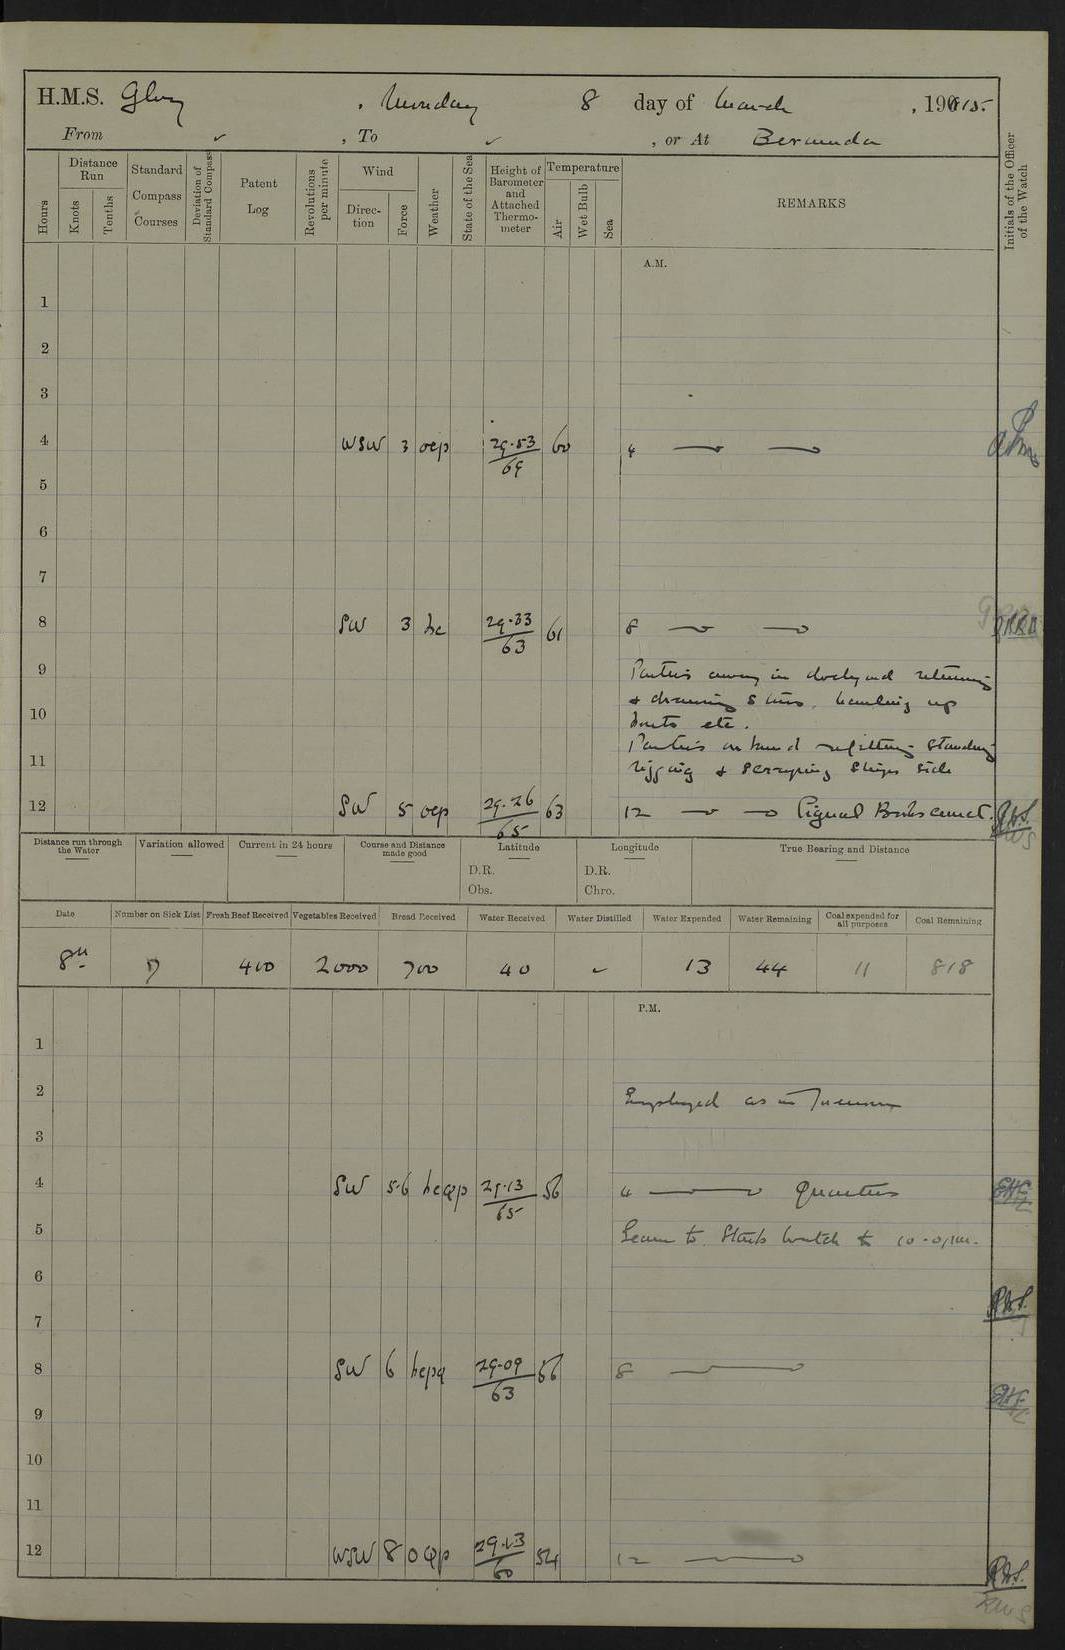 H.M.S. Glory , Monday 8 day of March , 1915.
From ✓ , To ✓ , or At Bermuda
Hours
Distance Run
Knots
Tenths
Standard Compass Courses
Deviation of Standard Compass
Patent Log
Revolutions per minute
Wind
Direction
Force
Weather
State of the Sea
Height of Barometer and Attached Thermometer
Temperature
Air
Wet Bulb
Sea
REMARKS
Initials of the Officer of the Watch
A.M.
1
2
3
4 WSW 3 ocp 29.53/69 60 4
5
6
7
8 SW 3 bc 29.33/63 61 8
9 Parties away in dockyard returning
& drawing stores, hauling up
10 boats etc.
Parties on board refitting standing
11 rigging & scraping ships side
12 SW 5 ocp 29.26/65 63 12 Signal Books correct. R.W.S.
Distance run through the Water
Variation allowed
Current in 24 hours
Course and Distance made good
Latitude
Longitude
True Bearing and Distance
D.R. D.R.
Obs. Chro.
Date Number on Sick List Fresh Beef Received Vegetables Received Bread Received Water Received Water Distilled Water Expended Water Remaining Coal expended for all purposes Coal Remaining
8th 7 400 2000 700 40 ✓ 13 44 11 818
P.M.
1
2 Employed as in forenoon
3
4 SW 5-6 bcqp 29.13/65 56 4 Quarters
5 Leave to Starb Watch to 10-0 p.m.
6
7 R.W.S.
8 SW 6 bcpq 29.09/63 56 8
9
10
11
12 WSW 8 oqp 29.13/60 54 12 R.W.S.